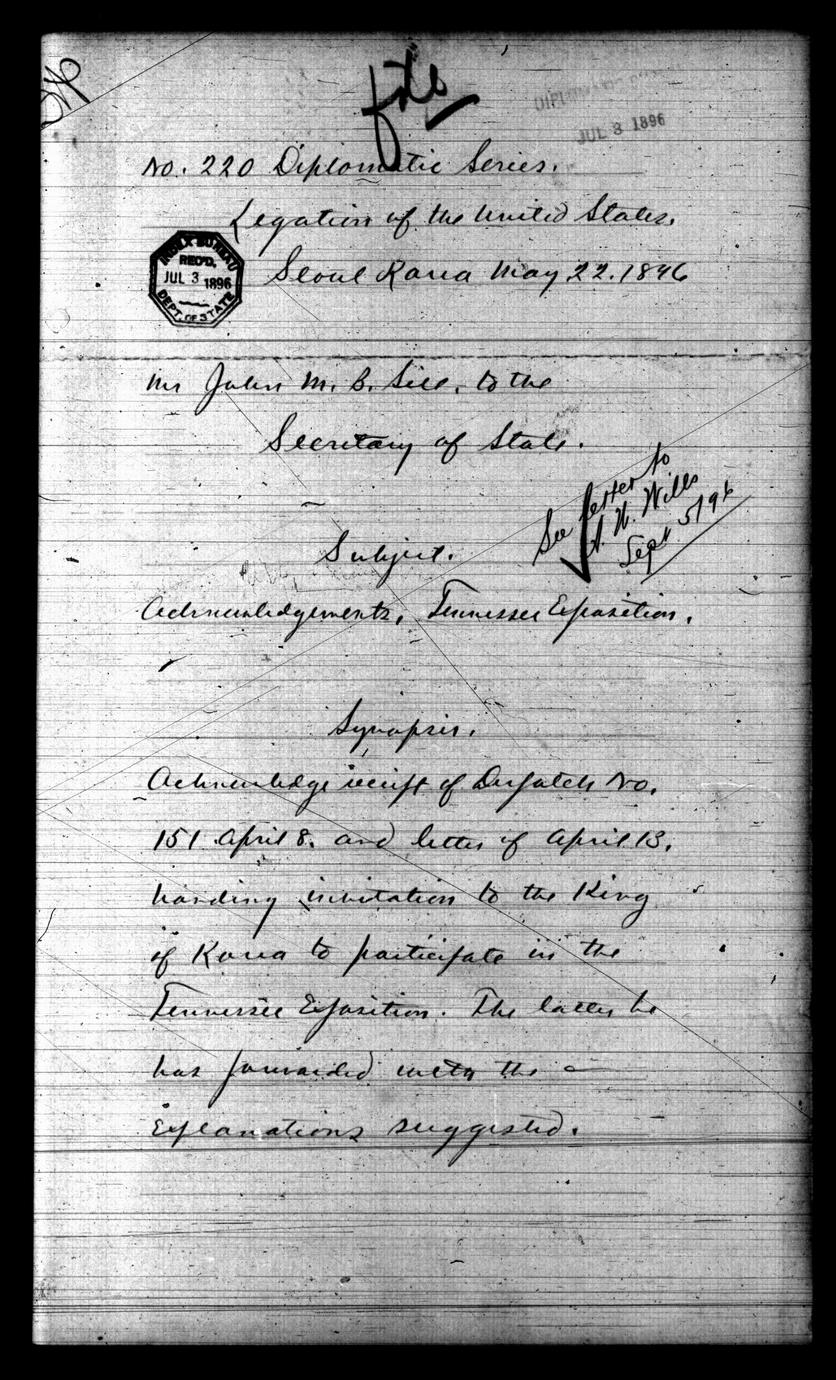 file
DIPLOMATIC
JUL 3 1896
No. 220 Diplomatic Series.
Legation of the United States.
INDEX BUREAU
REC'D,
JUL 3 1896
DEPT. OF STATE
Seoul Korea May 22. 1896
Mr John M. B. Sill, to the
Secretary of State.
See letter to
A. W. Wills
Sept 5/96
Subject.
Acknowledgements, Tennessee Exposition.
Synopsis.
Acknowledge receipt of Dispatch No.
151 April 8. and letter of April 13,
handing invitation to the King
of Korea to participate in the
Tennessee Exposition. The latter he
has forwarded with the
explanations suggested.